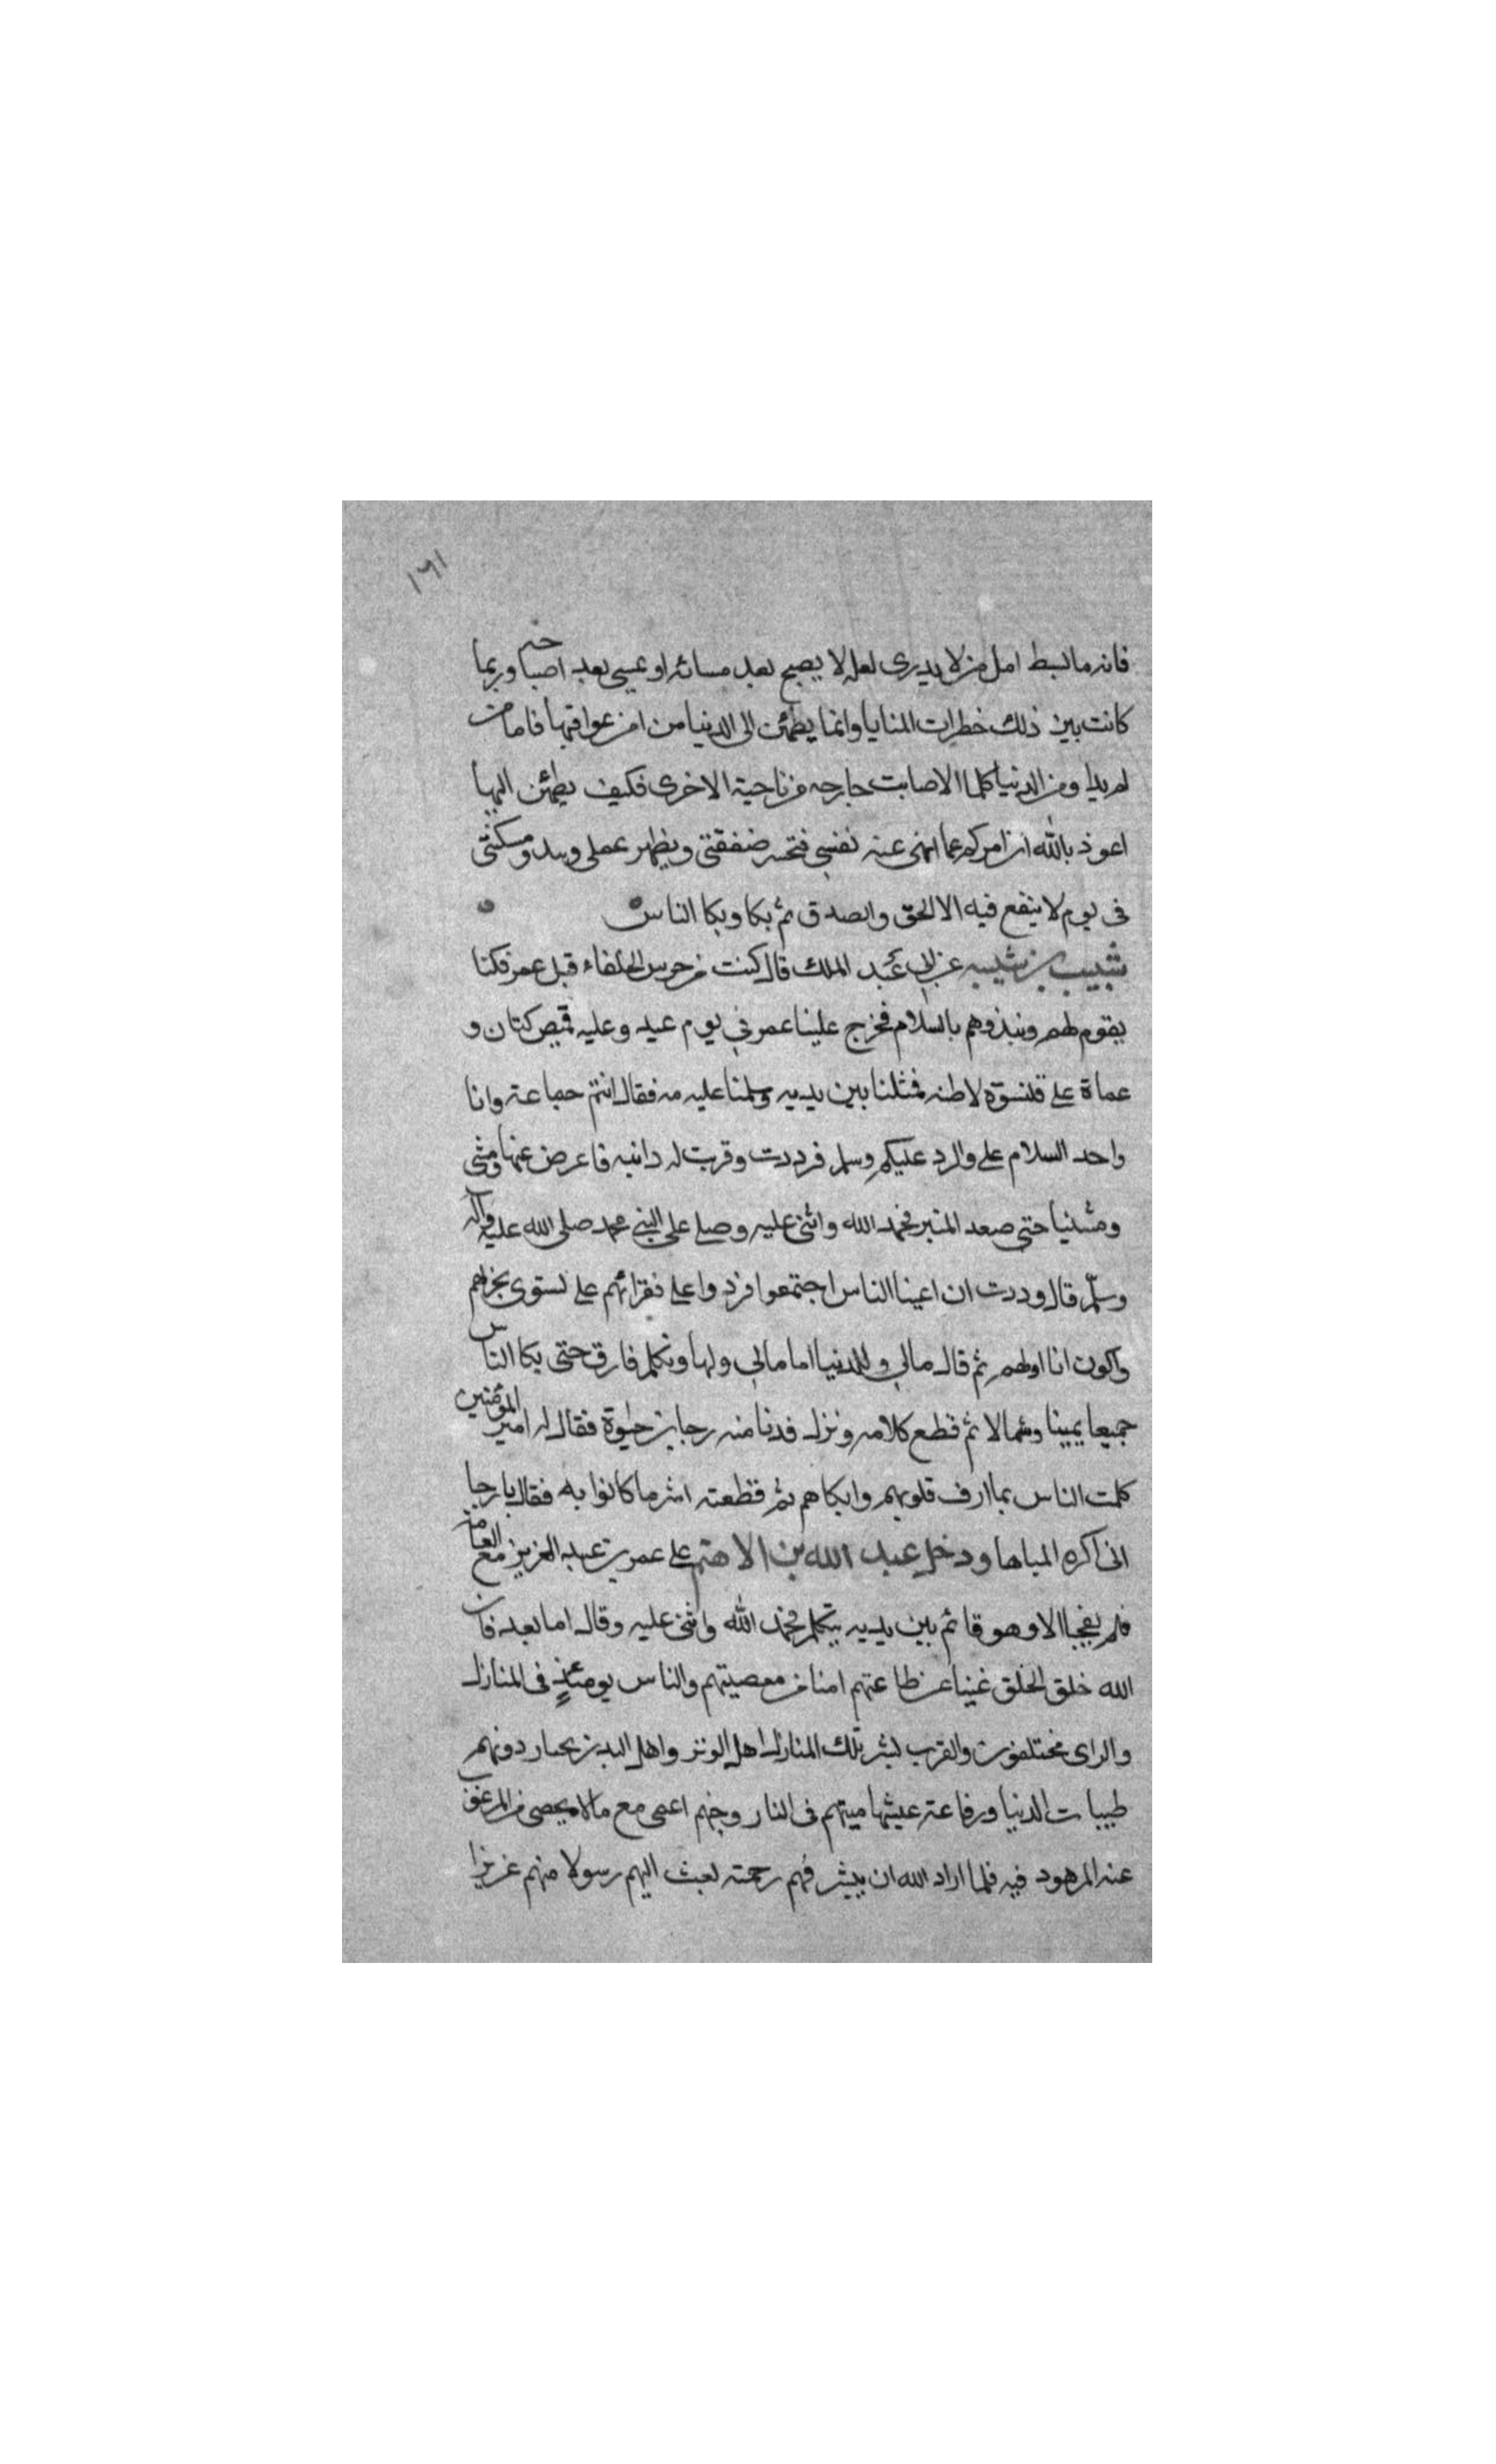 ١٦١
فانه ما بسط امل من لا يدرى لعله لا يصبح بعد مسائه او يمسى بعد اصباحه وربما
كانت بين ذلك خطرات المنايا وانما يطمئن الى الدنيا من امن عواقبها فاما من
لم يداو من الدنيا كلما الا صابت جارحه من ناحية الاخرى فكيف يطمئن اليها
اعوذ بالله ان امركم بما انهى عنه نفسى فتخسر صفقتى ويظهر عملى ويبدو مسكنتى
فى يوم لا ينفع فيه الا الحق والصدق ثم بكا وبكا الناس
شبيب بن شيبه عن ابى عبد الملك قال كنت من حرس الخلفاء قبل عمر فكنا
نقوم لهم ونبذوهم بالسلام فخرج علينا عمر فى يوم عيد وعليه قميص كتان و
عماة على قلنسوة لاطئه فمثلنا بين يديه وسلمنا عليه مه فقال انتم جماعة وانا
واحد السلام على والرد عليكم وسلم فرددت وقربت له دابته فاعرض عنها ومشى
ومشينا حتى صعد المنبر فحمد الله واثنى عليه وصلى على النبى محمد صلى الله عليه وآله
وسلّم قال وددت ان اعينا الناس اجتمعوا فردوا على فقرائهم على نستوى نحن بهم
واكون انا اولهم ثم قال مالى وللدنيا اما مالى ولها وتكلم فارق حتى بكا الناس
جميعا يمينا وشمالا ثم قطع كلامه ونزل فدنا منه رجا بن حيٰوة فقال له امير المؤمنين
كلمت الناس بما ارق قلوبهم وابكاهم ثم قطعته اشر ما كانوا به فقال يا رجا
انى اكره المباها ودخل عبد الله بن الاهتم على عمر بن عبد العزيز مع العامة
فلم يفجا الا وهو قائم بين يديه يتكلم فحمد الله واثنى عليه وقال اما بعد فان
الله خلق الخلق غنيا عن طاعتهم امنا من معصيتهم والناس يومئذٍ فى المنازل
والراى مختلفون والعرب بشر تلك المنازل اهل الوبر واهل المدر يحتار دونهم
طيبات الدنيا ورفاعة عيشها ميتهم فى النار وحيهم اعمى مع مالا يحصى من المرغوب
عنه المزهود فيه فلما اراد الله ان ينشر فهم رحمته بعث اليهم رسولا منهم عزيزا